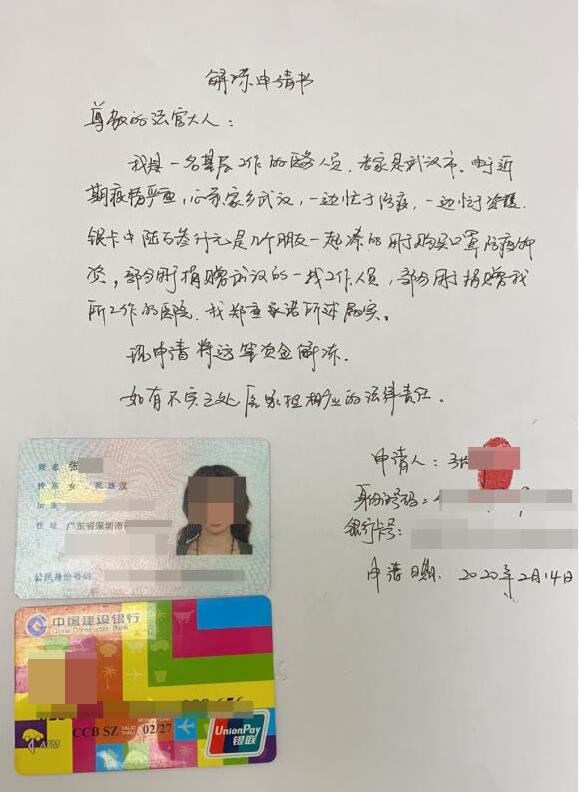 解冻申请书
尊敬的法官大人：
我是一名基层工作的医务人员，老家是武汉市。由于近
期疫情严重，心系家乡武汉，一边忙于防疫，一边忙于资援
银卡中陆万叁仟元是几个朋友一起凑的用于购买口罩防疫物
资，部分用于捐赠武汉的一线工作人员，部分用于捐赠我
所工作的医院。我郑重承诺所述属实。
现申请将这笔资金解冻．
如有不实之处 愿承担相应的法律责任．
申请人：张
身份证号码：
银行卡号：
申请日期．2020年2月14日
姓名 张
性别 女 民族 汉
出生
住址 广东省深圳市
公民身份号码
中国建设银行
China Construction Bank
CCB SZ VALID THRU 02/27
ATM
UnionPay
银联